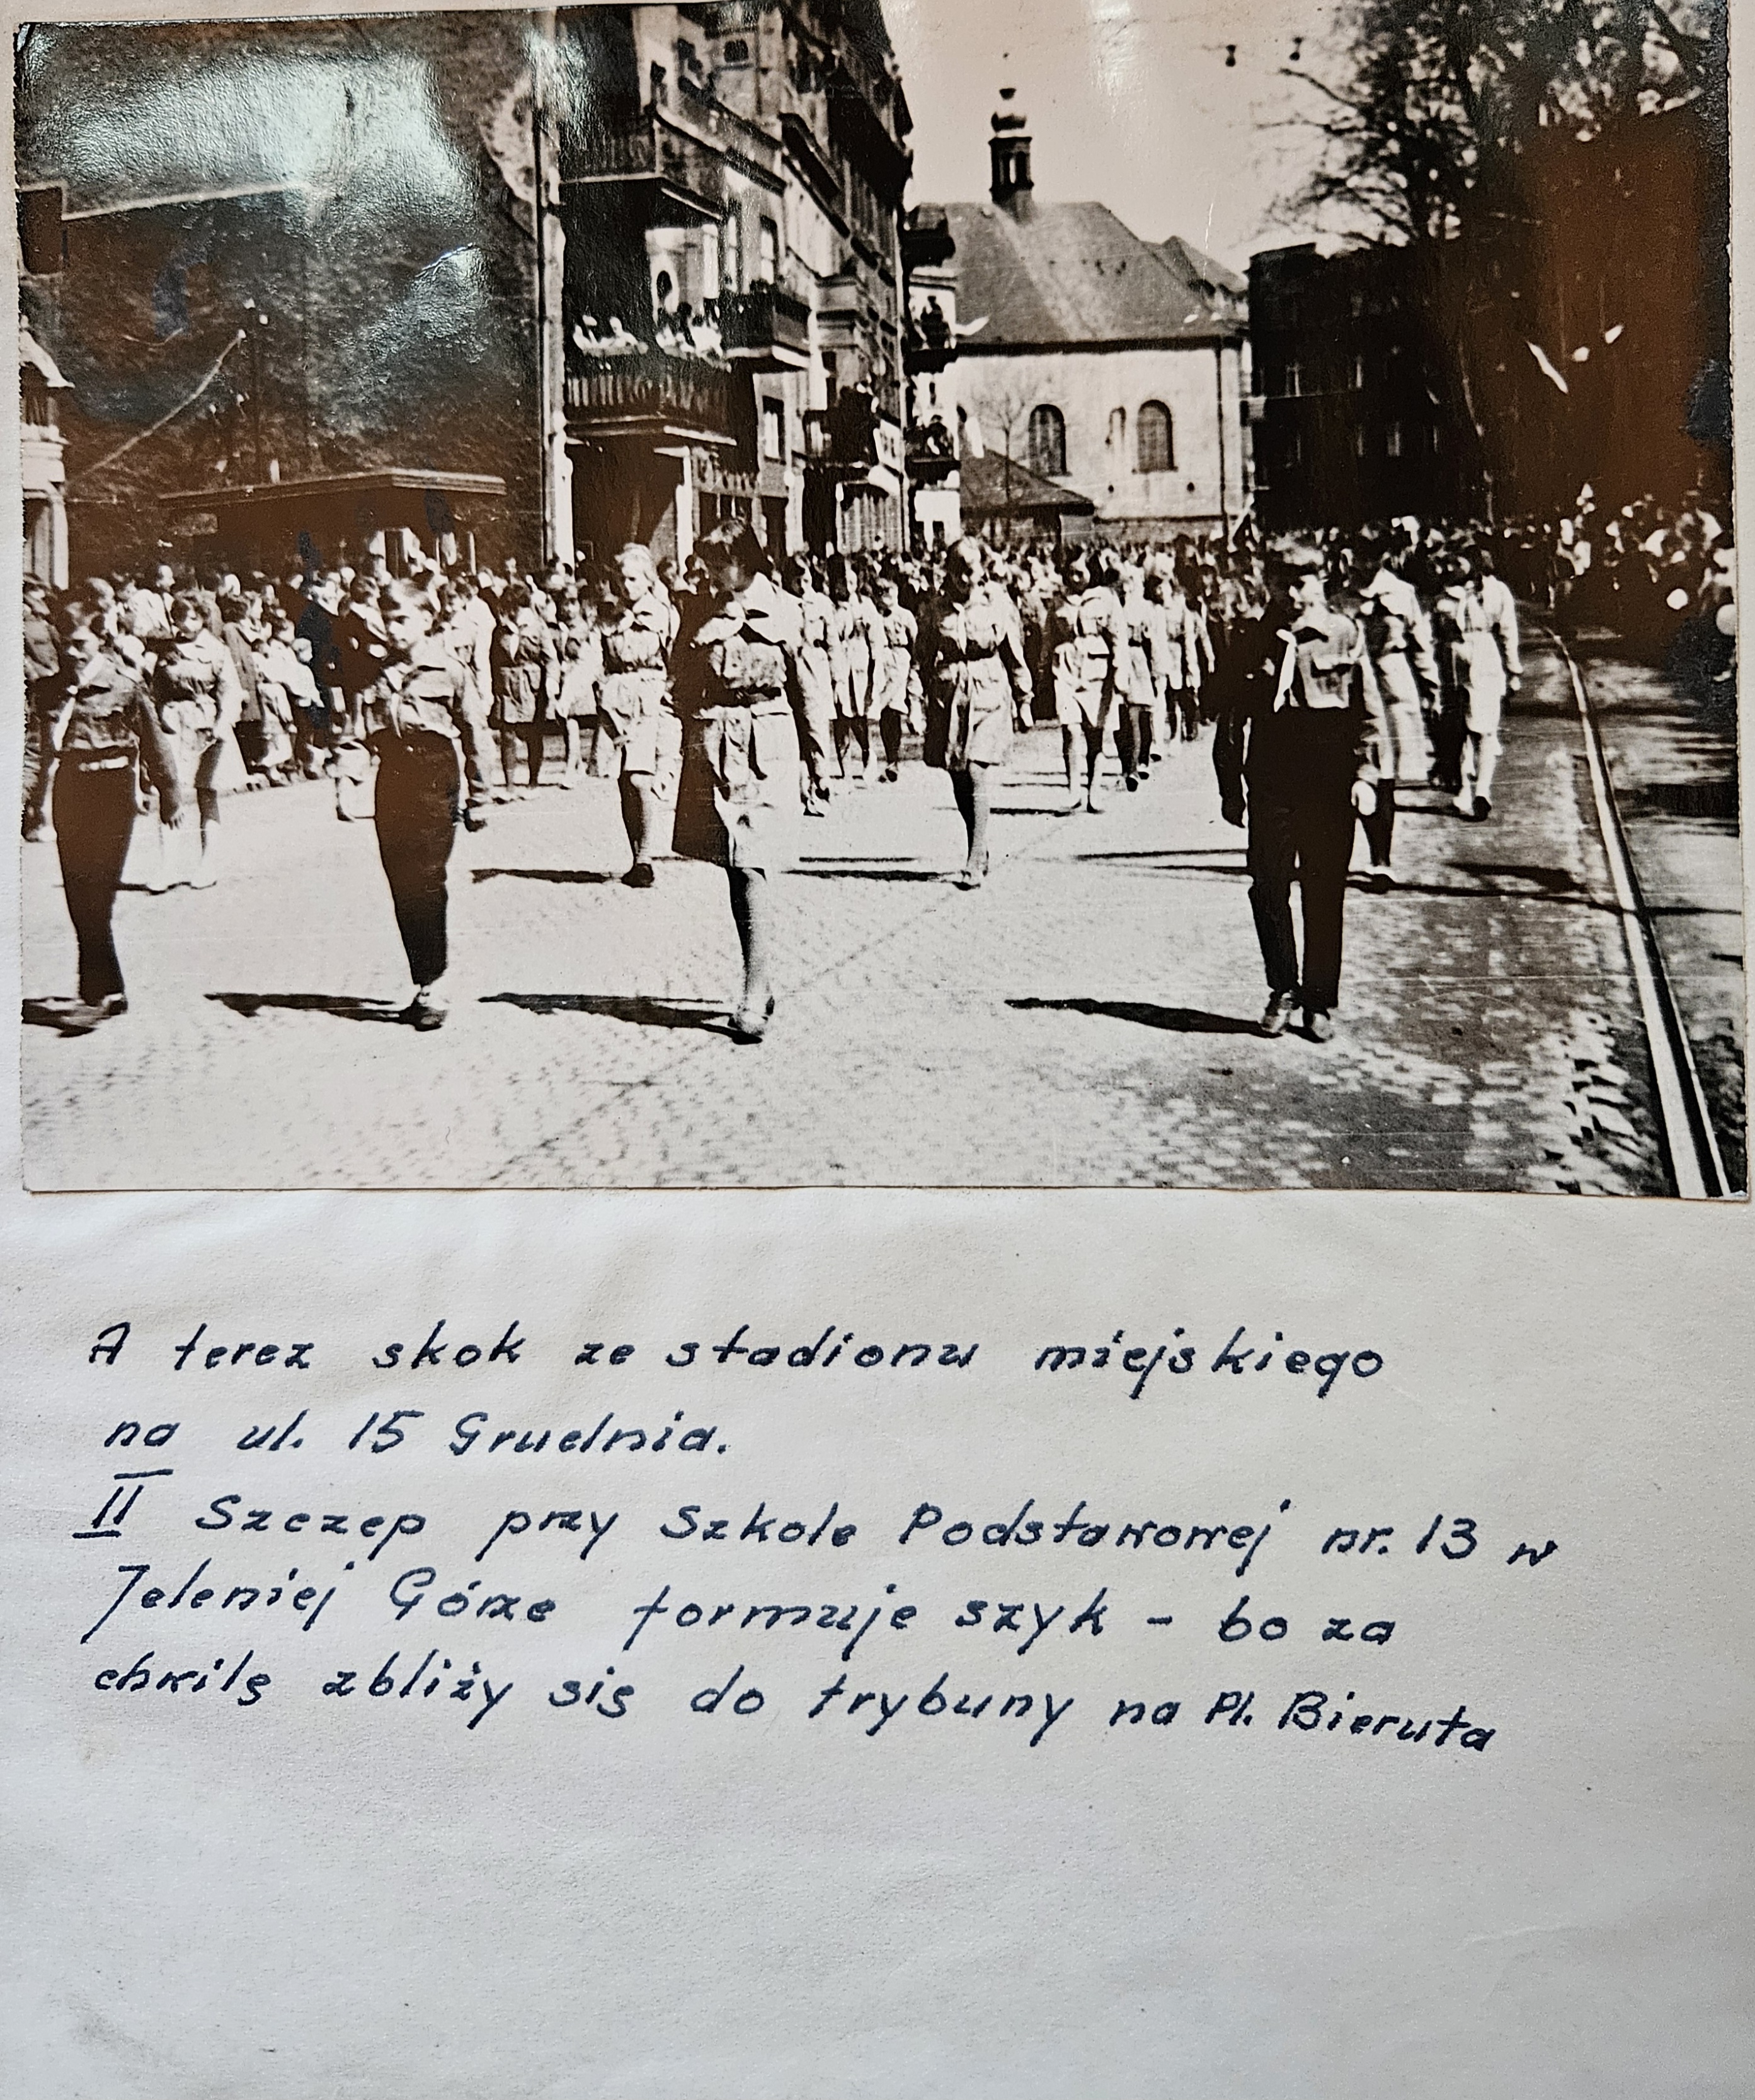 A teraz skok ze stadionu miejskiego
na ul. 15 Grudnia.
II Szczep przy Szkole Podstawowej nr. 13 w
Jeleniej Górze formuje szyk - bo za
chwilę zbliży się do trybuny na Pl. Bieruta